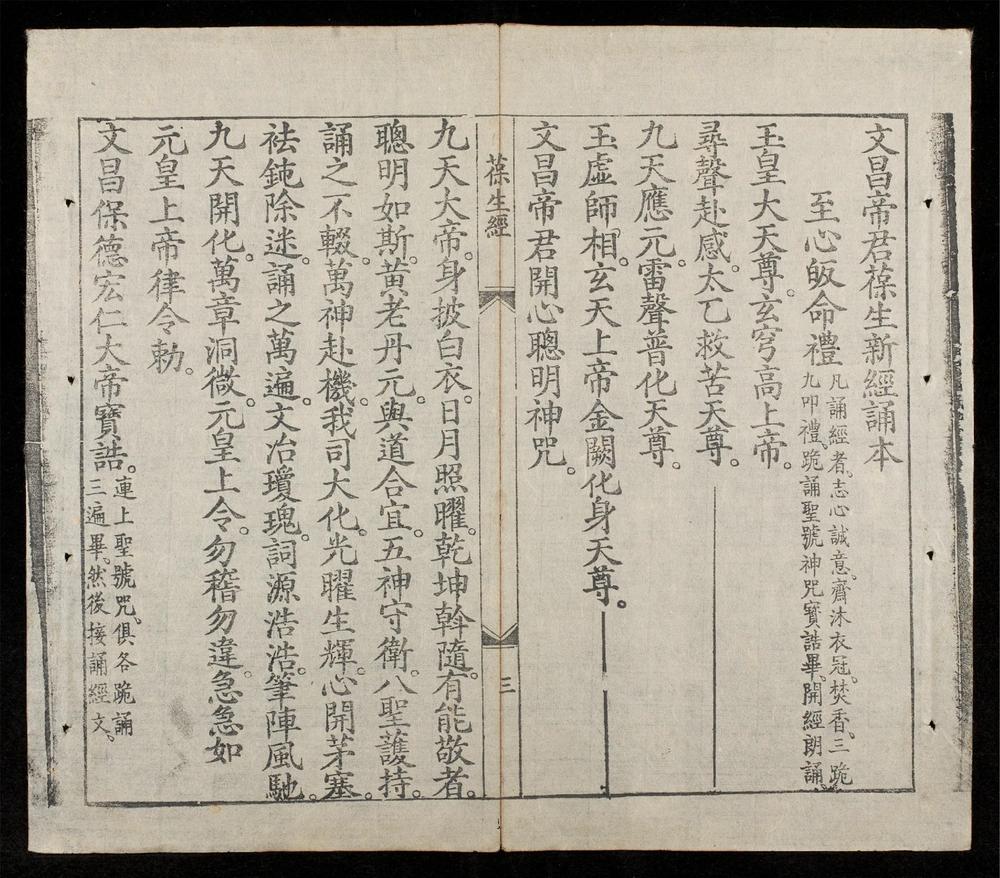 文昌帝君葆生新經誦本
至心皈命禮凡誦經者。志心誠意。齋沐衣冠。焚香。三跪
九叩禮。跪誦聖號神咒寶誥畢。開經朗誦。
玉皇大天尊。玄穹高上帝。
尋聲赴感。太乙救苦天尊。
九天應元。雷聲普化天尊。
玉虛師相。玄天上帝金闕化身天尊。
文昌帝君開心聰明神咒。
葆生經
三
九天大帝。身披白衣。日月照曜。乾坤斡隨。有能敬者。
聰明如斯。黃老丹元。與道合宜。五神守衛。八聖護持。
誦之不輟。萬神赴機。我司大化。光曜生輝。心開茅塞。
祛鈍除迷。誦之萬遍。文冶瓊瑰。詞源浩浩。筆陣風馳。
九天開化。萬章洞微。元皇上令。勿稽勿違。急急如
元皇上帝律令勅。
文昌保德宏仁大帝寶誥。連上聖號咒。俱各跪誦
三遍畢。然後接誦經文。